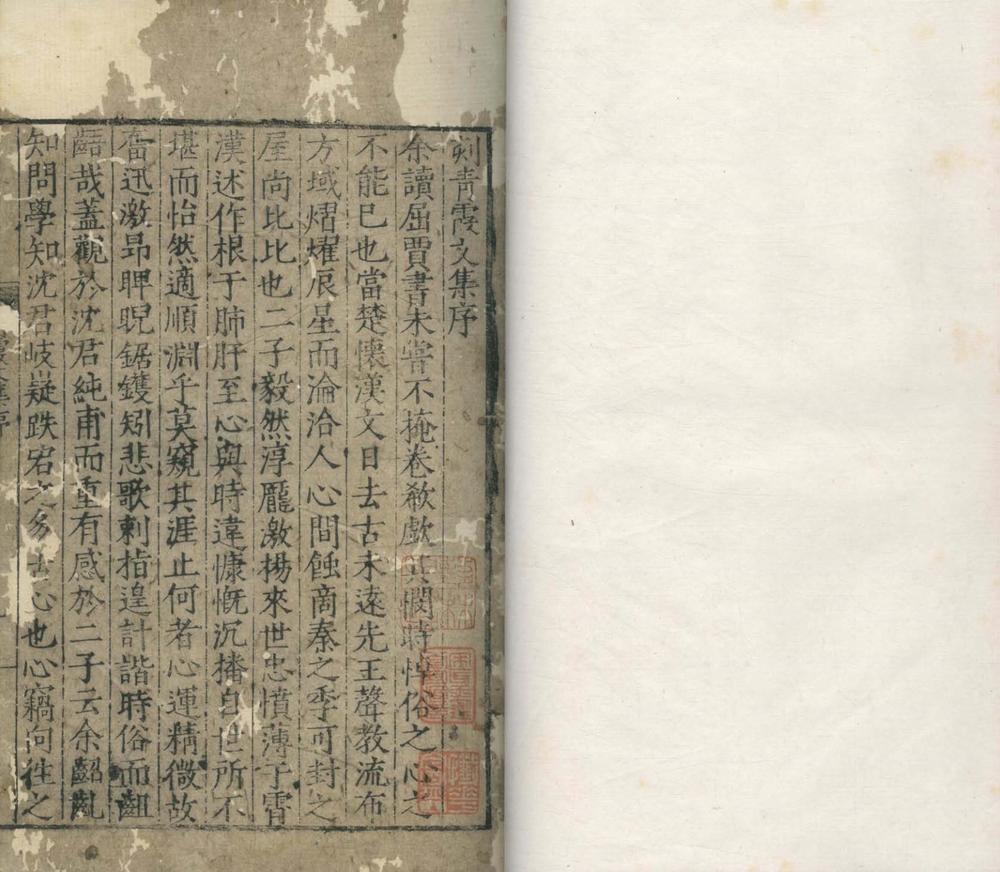 刻青霞文集序
余讀屈賈書未嘗不掩卷欷歔其憫時悼俗之心之
不能已也當楚懷漢文日去古未遠先王聲教流布
方域熠燿辰星而淪洽人心間蝕商秦之季可封之
屋尚比比也二子毅然淳龐激揚來世忠憤薄于霄
漢述作根于肺肝至心與時違慷慨沉播自世所不
堪而怡然適順淵乎莫窺其涯止何者心運精微故
奮迅激昻睥睨鋸鑊矧悲歌刺指遑計諧時俗而齟
齬哉蓋觀於沈君純甫而重有感於二子云余齠齓
知問學知沈君岐嶷跌宕之多世心也心竊向徃之